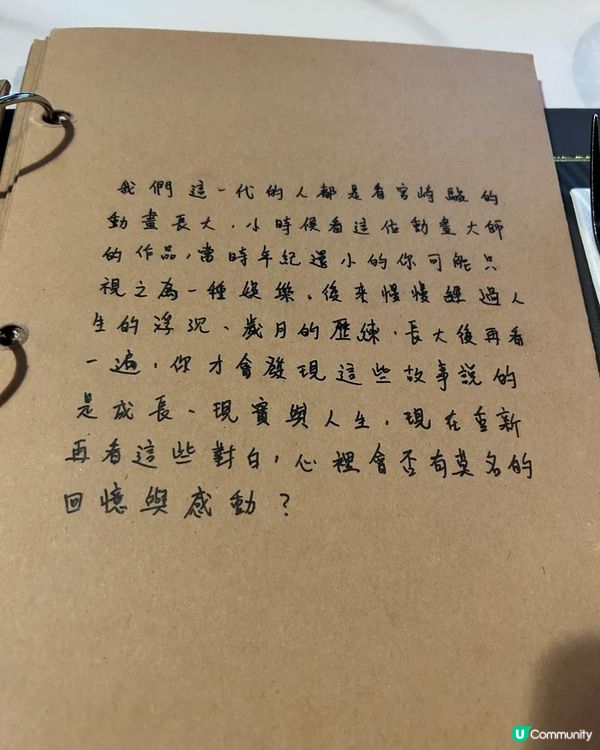 我們這一代的人都是看宮崎駿的
動畫長大，小時候看這位動畫大師
的作品，當時年紀還小的你可能只
視之為一種娛樂。後來慢慢經過人
生的浮沉、歲月的歷練，長大後再看
一遍，你才會發現這些故事說的
是成長、現實與人生，現在重新
再看這些對白，心裡會否有莫名的
回憶與感動？
U Community